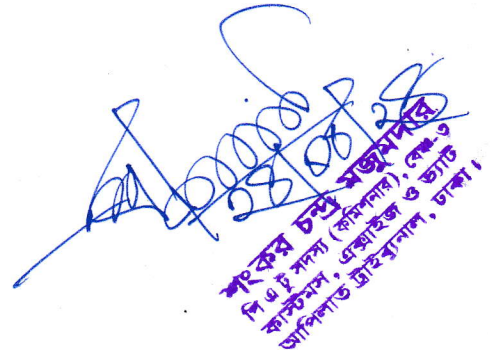 ২৪/০৪/২৪
শংকর চন্দ্র মজুমদার
পি এ টু সদস্য (কমিশনার), বেঞ্চ-৩
কাস্টমস, এক্সাইজ ও ভ্যাট
আপিলাত ট্রাইব্যুনাল, ঢাকা।